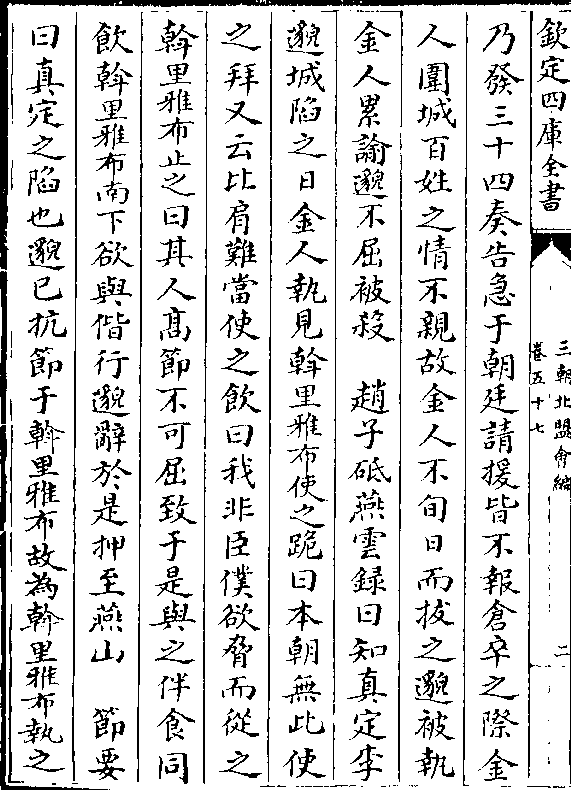 欽定四庫全書
三朝北盟會編
卷五十七
二
乃發三十四奏告急于朝廷請援皆不報倉卒之際金
人圍城百姓之情不親故金人不旬日而拔之邈被執
金人累諭邈不屈被殺　趙子砥燕雲録曰知真定李
邈城陷之日金人執見斡里雅布使之跪曰本朝無此使
之拜又云比肩難當使之飲曰我非臣僕欲脅而從之
斡里雅布止之曰其人髙節不可屈致于是與之伴食同
飲斡里雅布南下欲與偕行邈辭於是押至燕山　節要
曰真定之陷也邈已抗節于斡里雅布故為斡里雅布執之